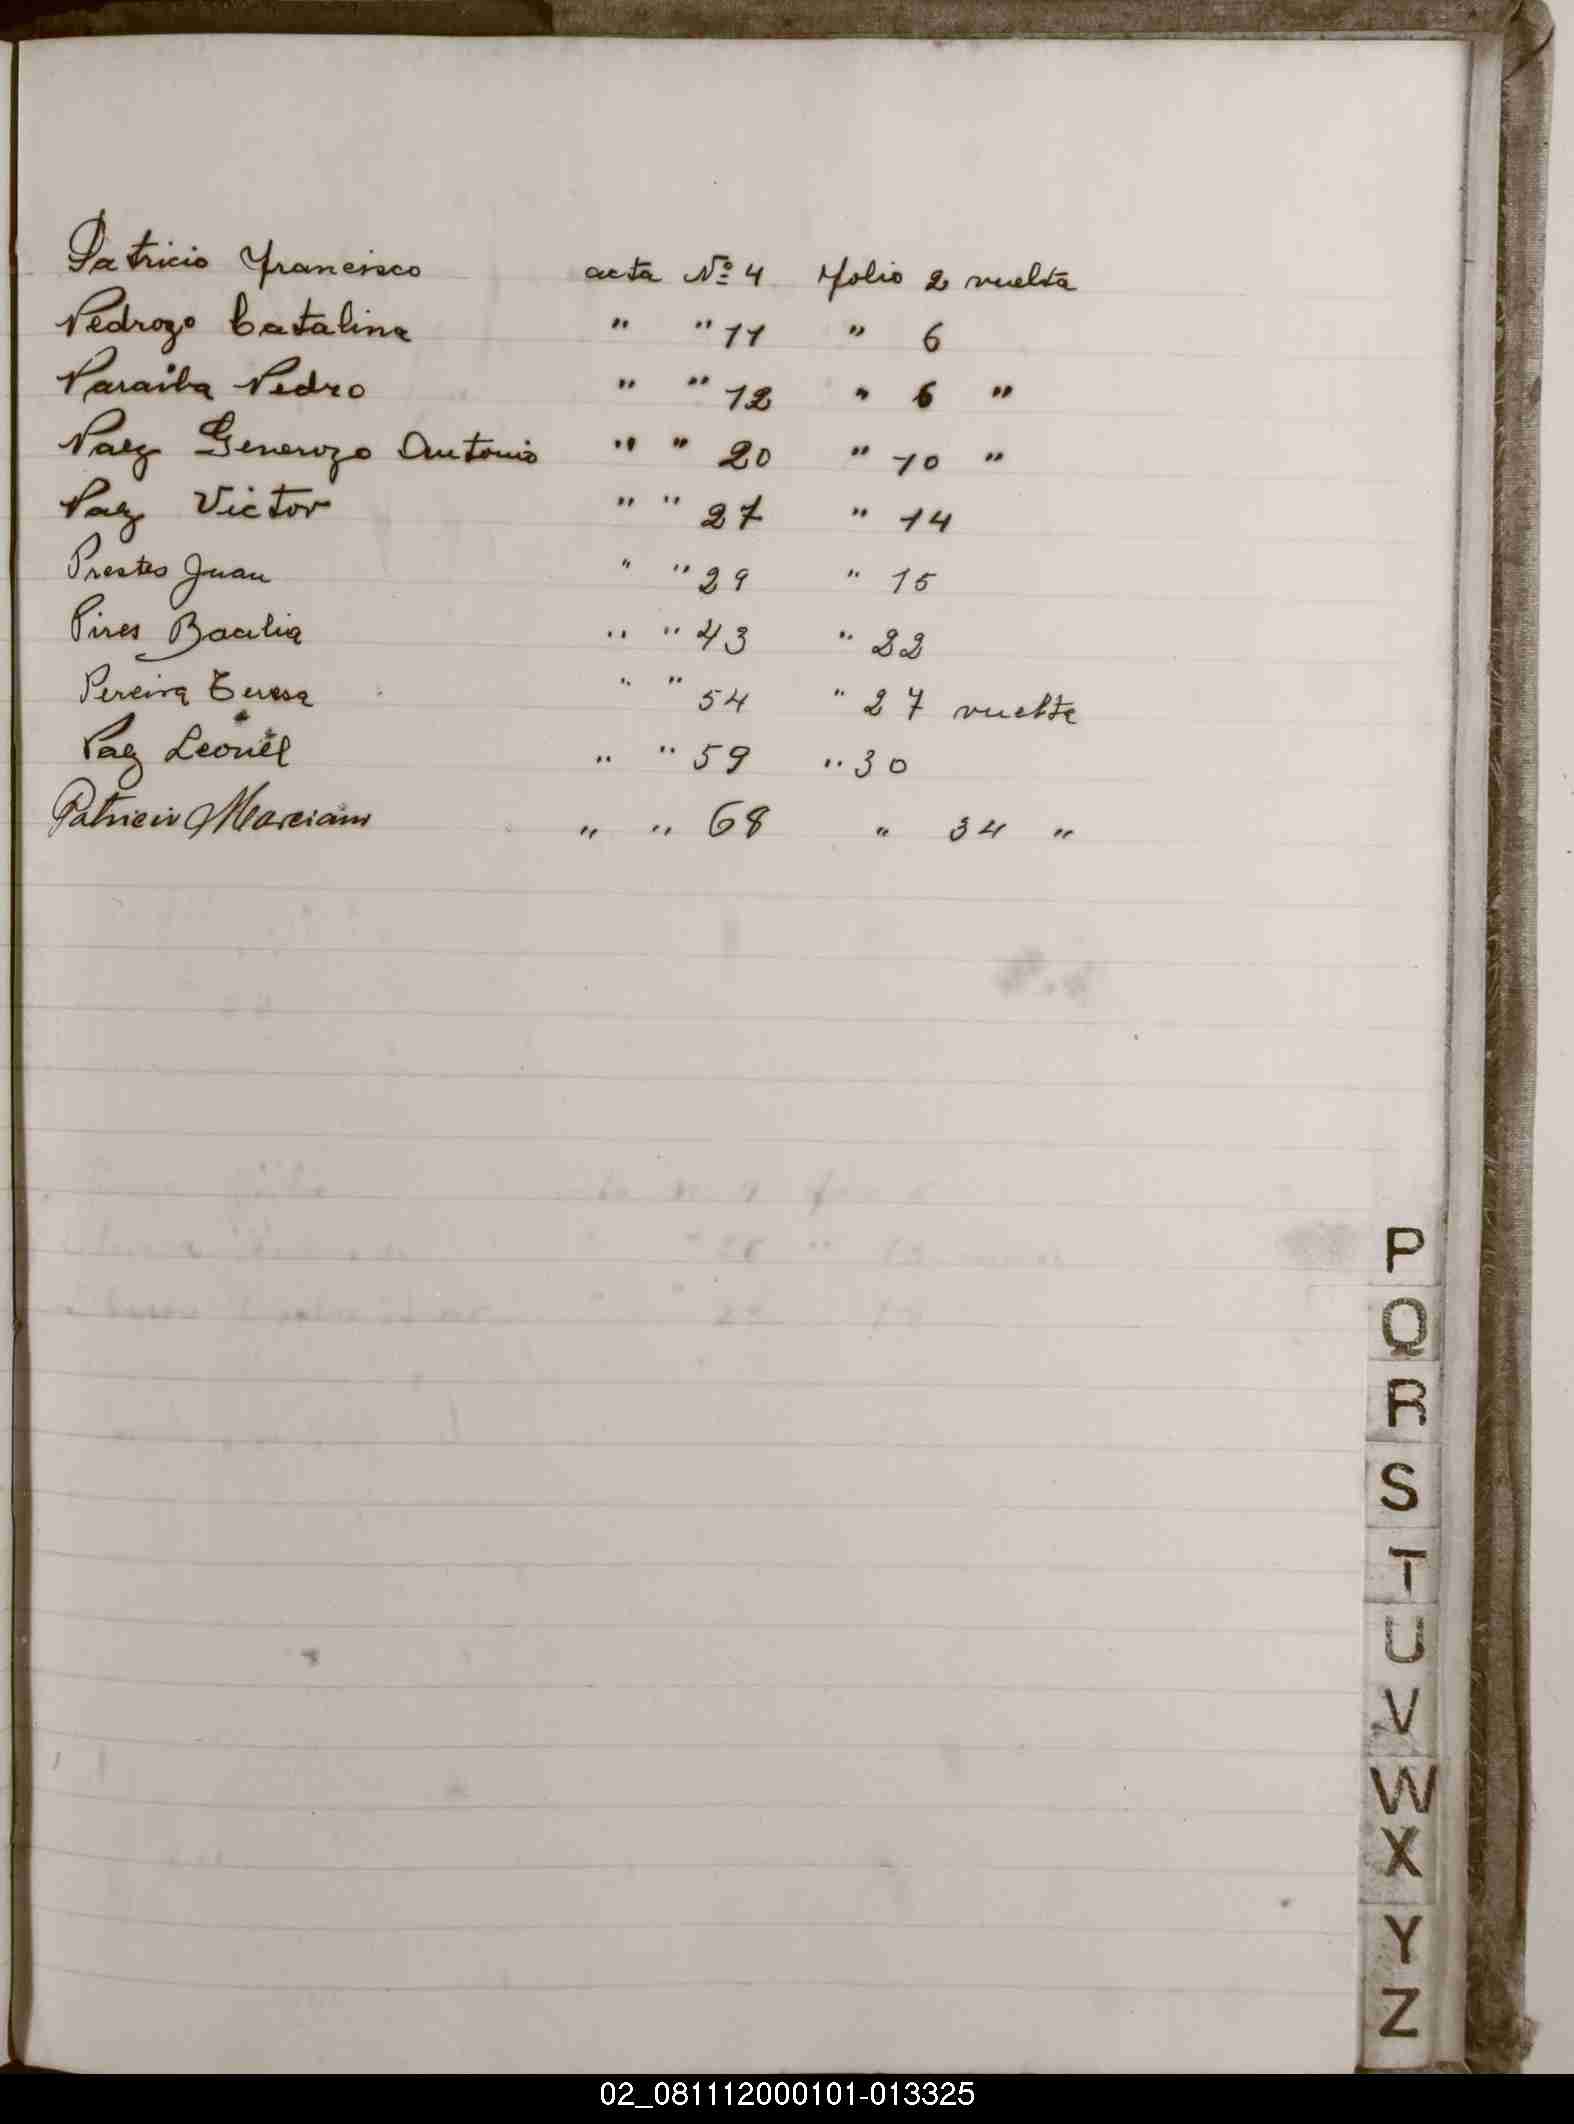 Patricio Francisco acta Nº 4 Folio 2 vuelta
Pedrozo Catalina " " 11 " 6
Paraiba Pedro " " 12 " 6 "
Paez Generozo Antonio " " 20 " 10 "
Paez Victor " " 27 " 14
Prestes Juan " " 29 " 15
Pires Bacilia " " 43 " 22
Pereira Teresa " " 54 " 27 vuelta
Paez Leonel " " 59 " 30
Patricio Marciano " " 68 " 34 "
P
Q
R
S
T
U
V
W
X
Y
Z
02_081112000101-013325